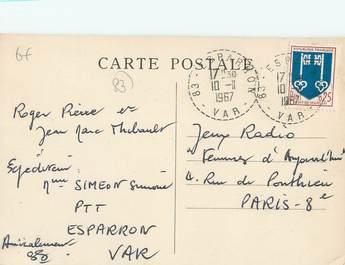 6f
83
CARTE POSTALE
ESPARRON
17 30
10 - 11
1967
83 - VAR -
RÉPUBLIQUE FRANÇAISE
0,25
Roger Pierre et
Jean Marc Thibault
Expediteur:
Mme SIMEON Simone
PTT
ESPARRON
VAR
Amicalement
Jeux Radio
"Femmes d'Aujourd'hui"
4. Rue de Ponthieu
PARIS-8e